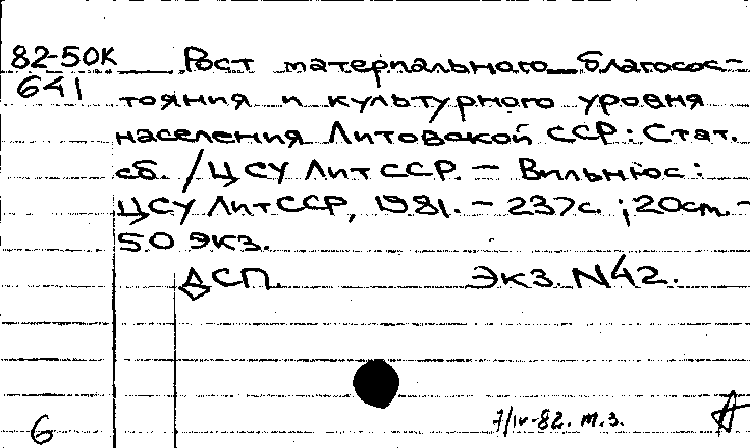 82-50К Рост материального благосос-
641 тояния и культурного уровня
населения Литовской ССР: Стат.
сб. / ЦСУ ЛитССР. — Вильнюс:
ЦСУ ЛитССР, 1981. — 237с. ; 20см. -
50 экз.
ДСП. Экз. N42.
7/IV-82. т.з.
б